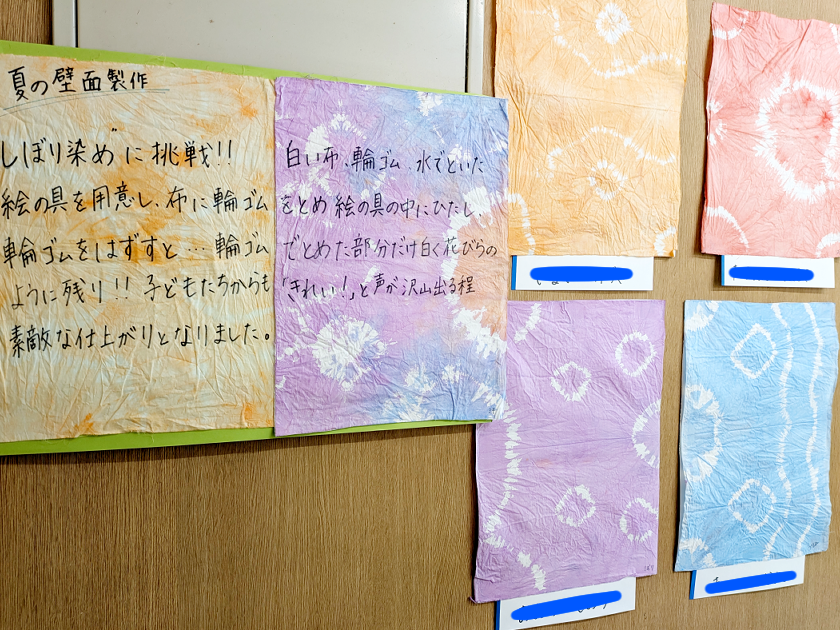 夏の壁面製作
しぼり染め゛に挑戦!! 白い布、輪ゴム、水でといた
絵の具を用意し、布に輪ゴムをとめ絵の具の中にひたし、
輪ゴムをはずすと…輪ゴムでとめた部分だけ白く花びらの
ように残り!!子どもたちからも「きれい!」と声が沢山出る程
素敵な仕上がりとなりました。